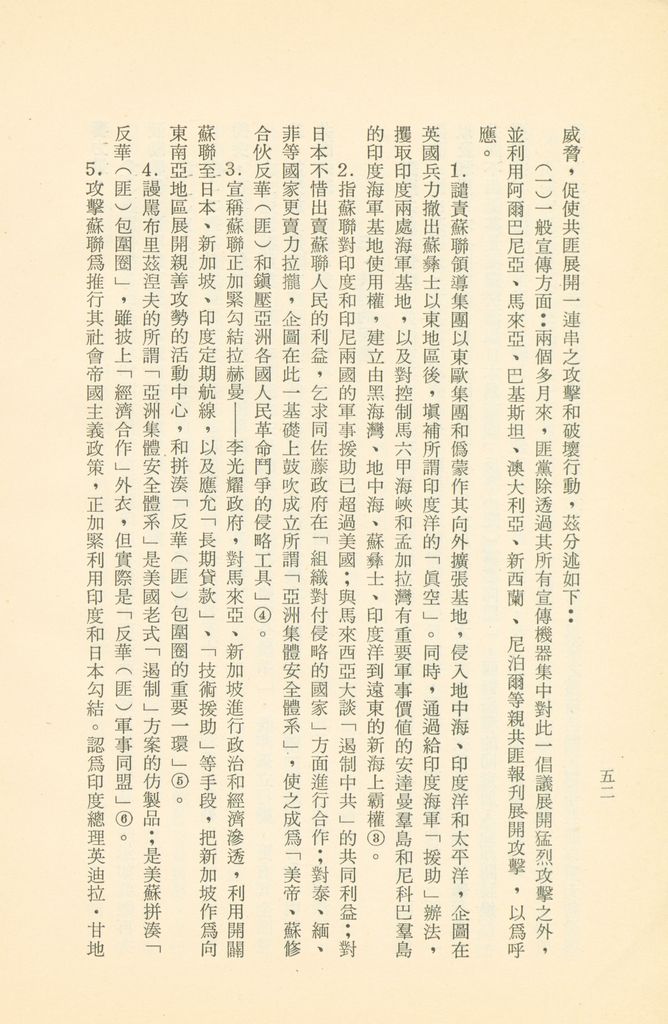 威脅，促使共匪展開一連串之攻擊和破壞行動，茲分述如下：
（一）一般宣傳方面：兩個多月來，匪黨除透過其所有宣傳機器集中對此一倡議展開猛烈攻擊之外，
並利用阿爾巴尼亞、馬來亞、巴基斯坦、澳大利亞、新西蘭、尼泊爾等親共匪報刊展開攻擊，以爲呼
應。
1.譴責蘇聯領導集團以東歐集團和僞蒙作其向外擴張基地，侵入地中海、印度洋和太平洋，企圖在
英國兵力撤出蘇彝士以東地區後，塡補所謂印度洋的「眞空」。同時，通過給印度海軍「援助」辦法，
攫取印度兩處海軍基地，以及對控制馬六甲海峽和孟加拉灣有重要軍事價値的安達曼羣島和尼科巴羣島
的印度海軍基地使用權，建立由黑海灣、地中海、蘇彝士、印度洋到遠東的新海上霸權③。
2.指蘇聯對印度和印尼兩國的軍事援助已超過美國；與馬來西亞大談「遏制中共」的共同利益；對
日本不惜出賣蘇聯人民的利益，乞求同佐藤政府在「組織對付侵略的國家」方面進行合作；對泰、緬、
菲等國家更賣力拉攏，企圖在此一基礎上鼓吹成立所謂「亞洲集體安全體系」，使之成爲「美帝、蘇修
合伙反華（匪）和鎭壓亞洲各國人民革命鬥爭的侵略工具」④。
3.宣稱蘇聯正加緊勾結拉赫曼——李光耀政府，對馬來亞、新加坡進行政治和經濟滲透，利用開闢
蘇聯至日本、新加坡、印度定期航線，以及應允「長期貸款」、「技術援助」等手段，把新加坡作爲向
東南亞地區展開親善攻勢的活動中心，和拼湊「反華（匪）包圍圈的重要一環」⑤。
4.謾駡布里茲湼夫的所謂「亞洲集體安全體系」是美國老式「遏制」方案的仿製品；是美蘇拼湊「
反華（匪）包圍圈」，雖披上「經濟合作」外衣，但實際是「反華（匪）軍事同盟」⑥。
5.攻擊蘇聯爲推行其社會帝國主義政策，正加緊利用印度和日本勾結。認爲印度總理英迪拉·甘地
五二